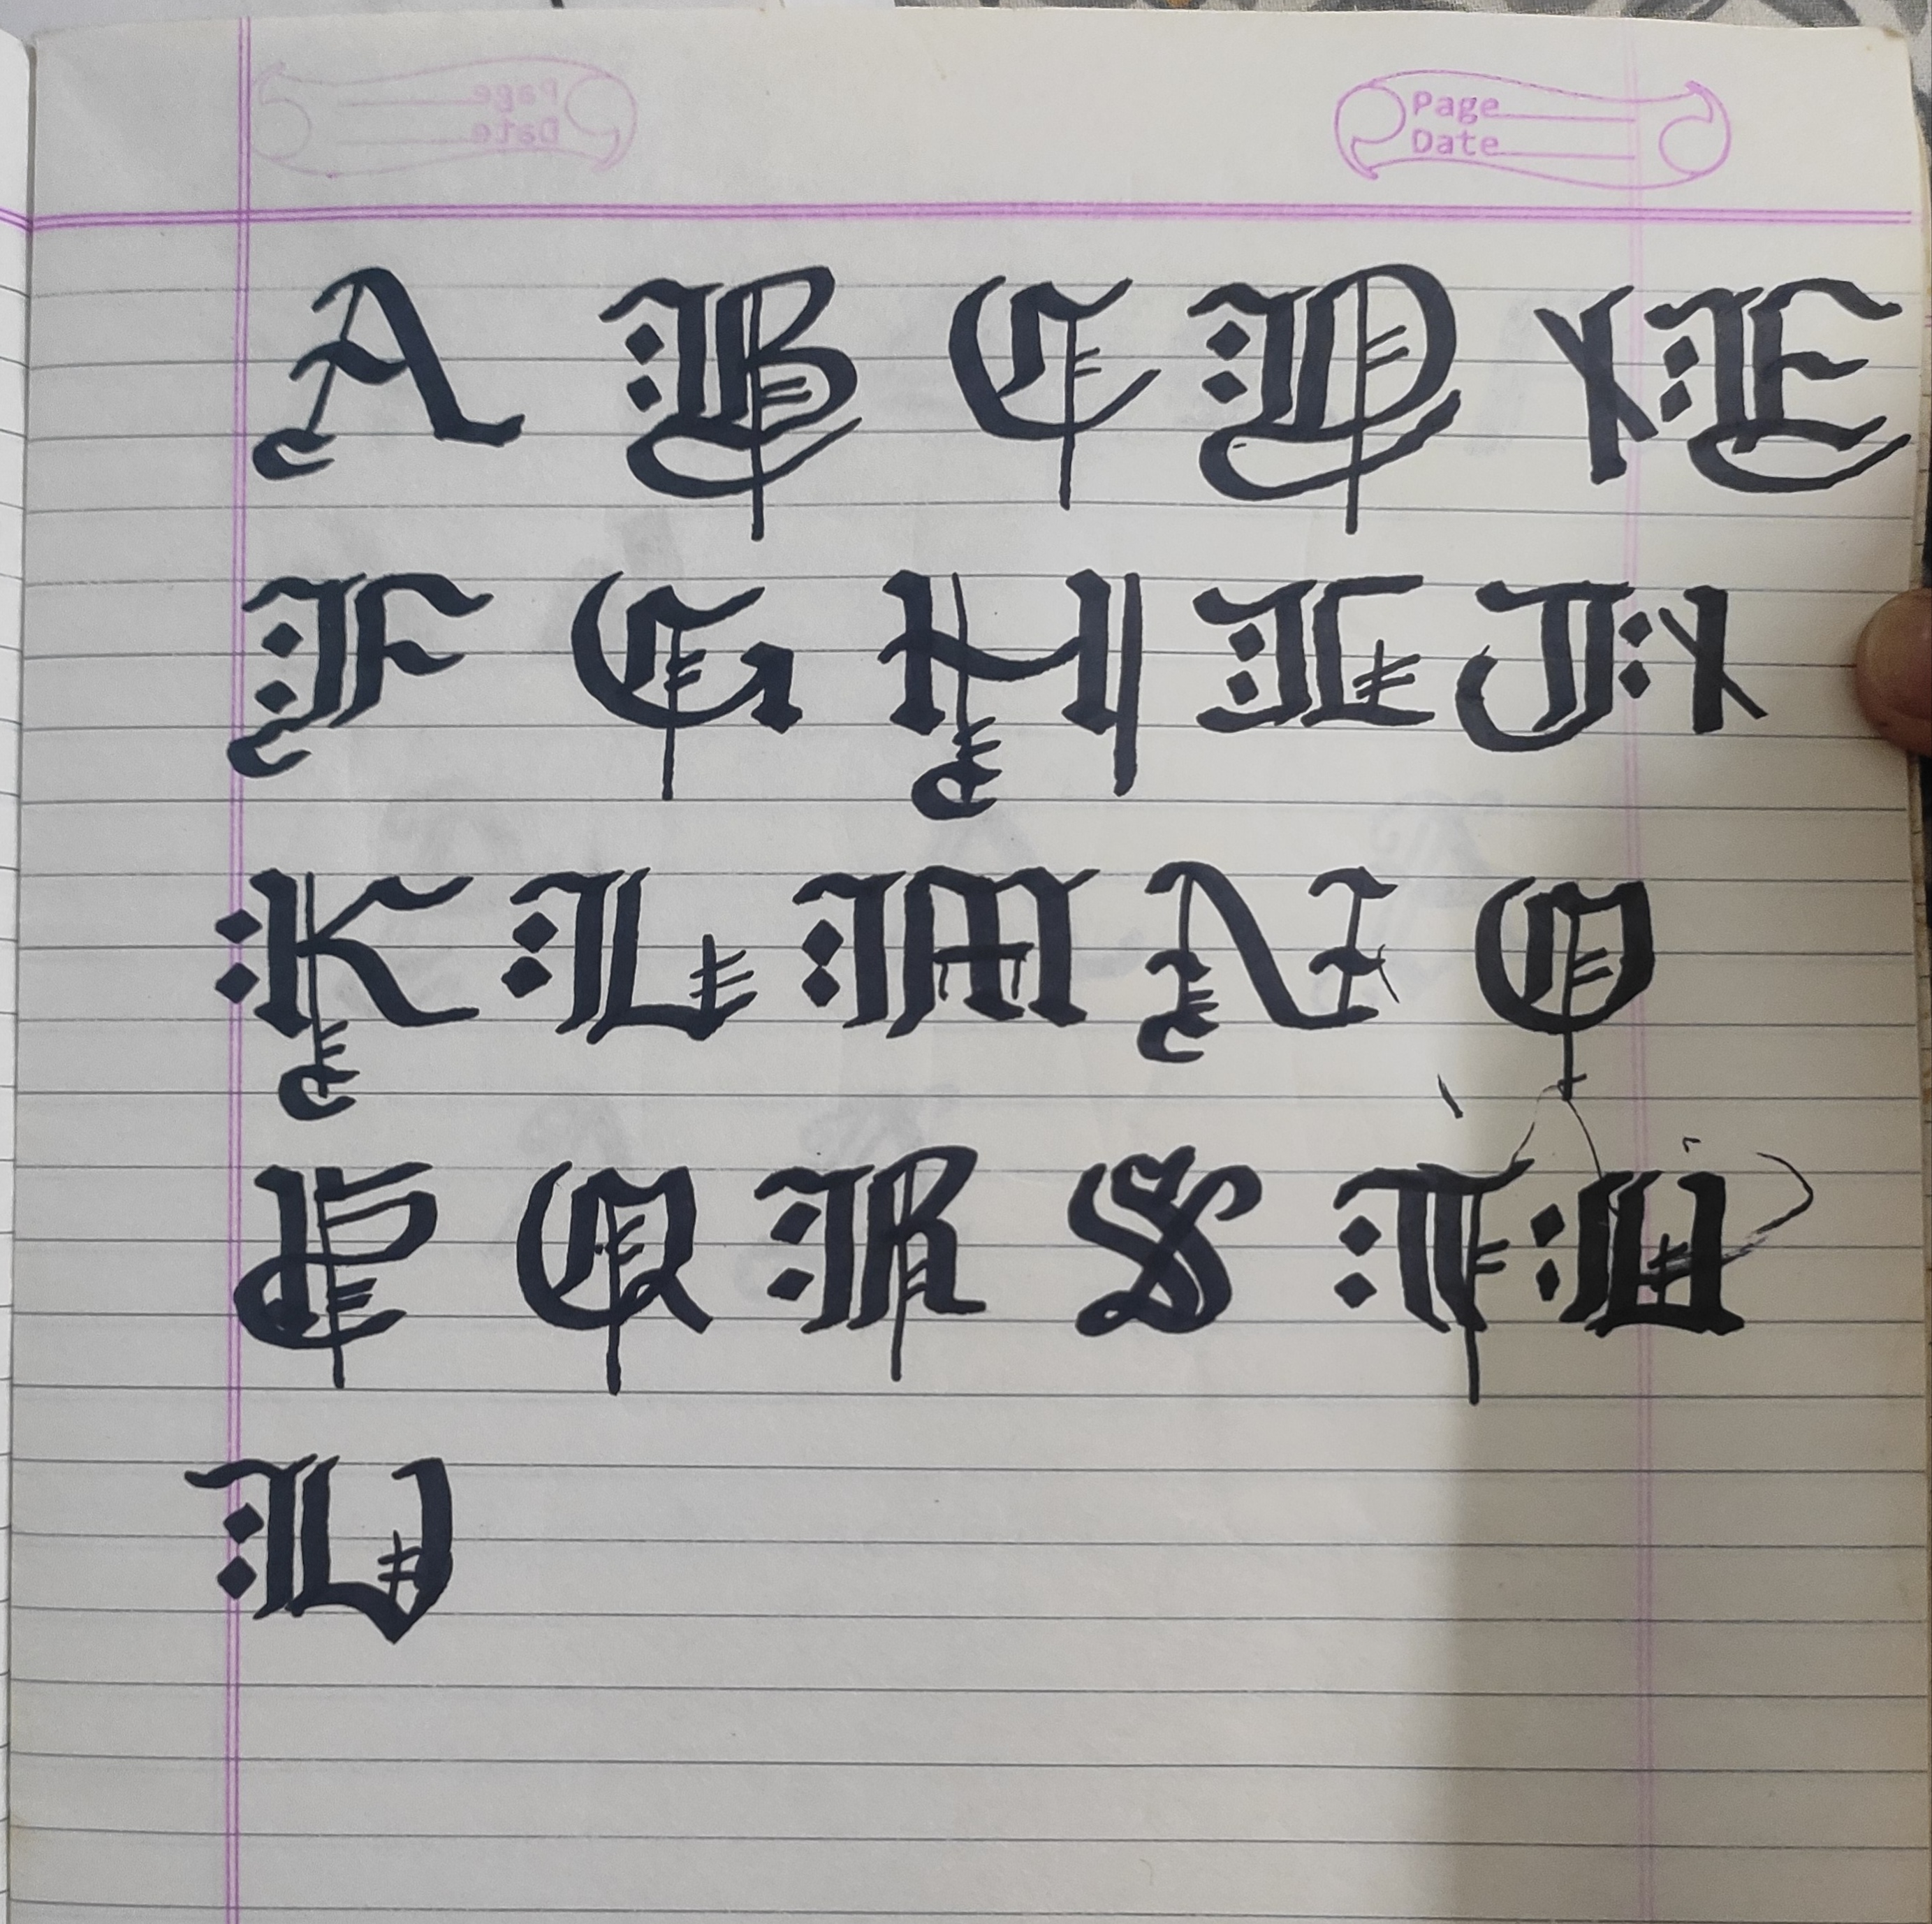 Page
Date
A B C D E
F G H I J
K L M N O
P Q R S T U
V